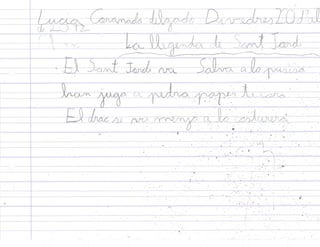 Lucia Coronado delgado Divedres 20 d'al
de 2012
La llegenda de Sant Jordi
El Sant Jordi va Salva a la
han jugo a pedra paper
El drac se va menja a la costurera